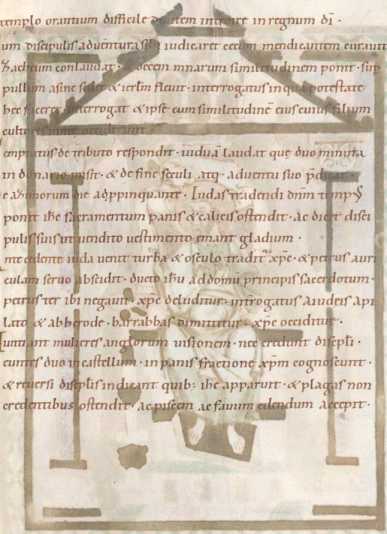 templo orantium difficile diuitem intrare in regnum dī ·
um discipulis aduentura sibi iudicaret cecum mendicantem curauit
Zacheum conlaudat · decem mnarum similitudinem ponit · sup
pullum asinę sedet & ierlm fleuit · interrogatus in qua potestate
hec faceret interrogat & ipse cum similitudinē eius cuius filium
cultores uineę occiderunt ·
emptatus de tributo respondit · uiduā laudat que duo minuta
in donario misit · & de fine seculi atq · aduentu suo p̄dicat ·
e azimorum die adpropinquante · Iudas tradendi dnm temp
ponit ihc sacramentum panis & calicis ostendit · ac dicit disci
pulis suis ut uendito uestimento emant gladium ·
nte cedente iuda uenit turba & osculo tradit xp̄c · & petrus auri
culam seruo abscidit · ducto ihū ad domū principis sacerdotum ·
petrus ter ibi negauit · xpc deluditur · interrogatus a iudeis a pi
lato & ab herode · barrabbas dimittitur · xp̄c occiditur ·
untiant mulieres angelorum uisionem · nec credunt discipli ·
euntes duo in castellum · in panis fractione xpm cognoscunt ·
& reuersi discplis indicant quib; ihc apparuit · & plagas non
credentibus ostendit · ac piscem ac fauum edendum accepit ·